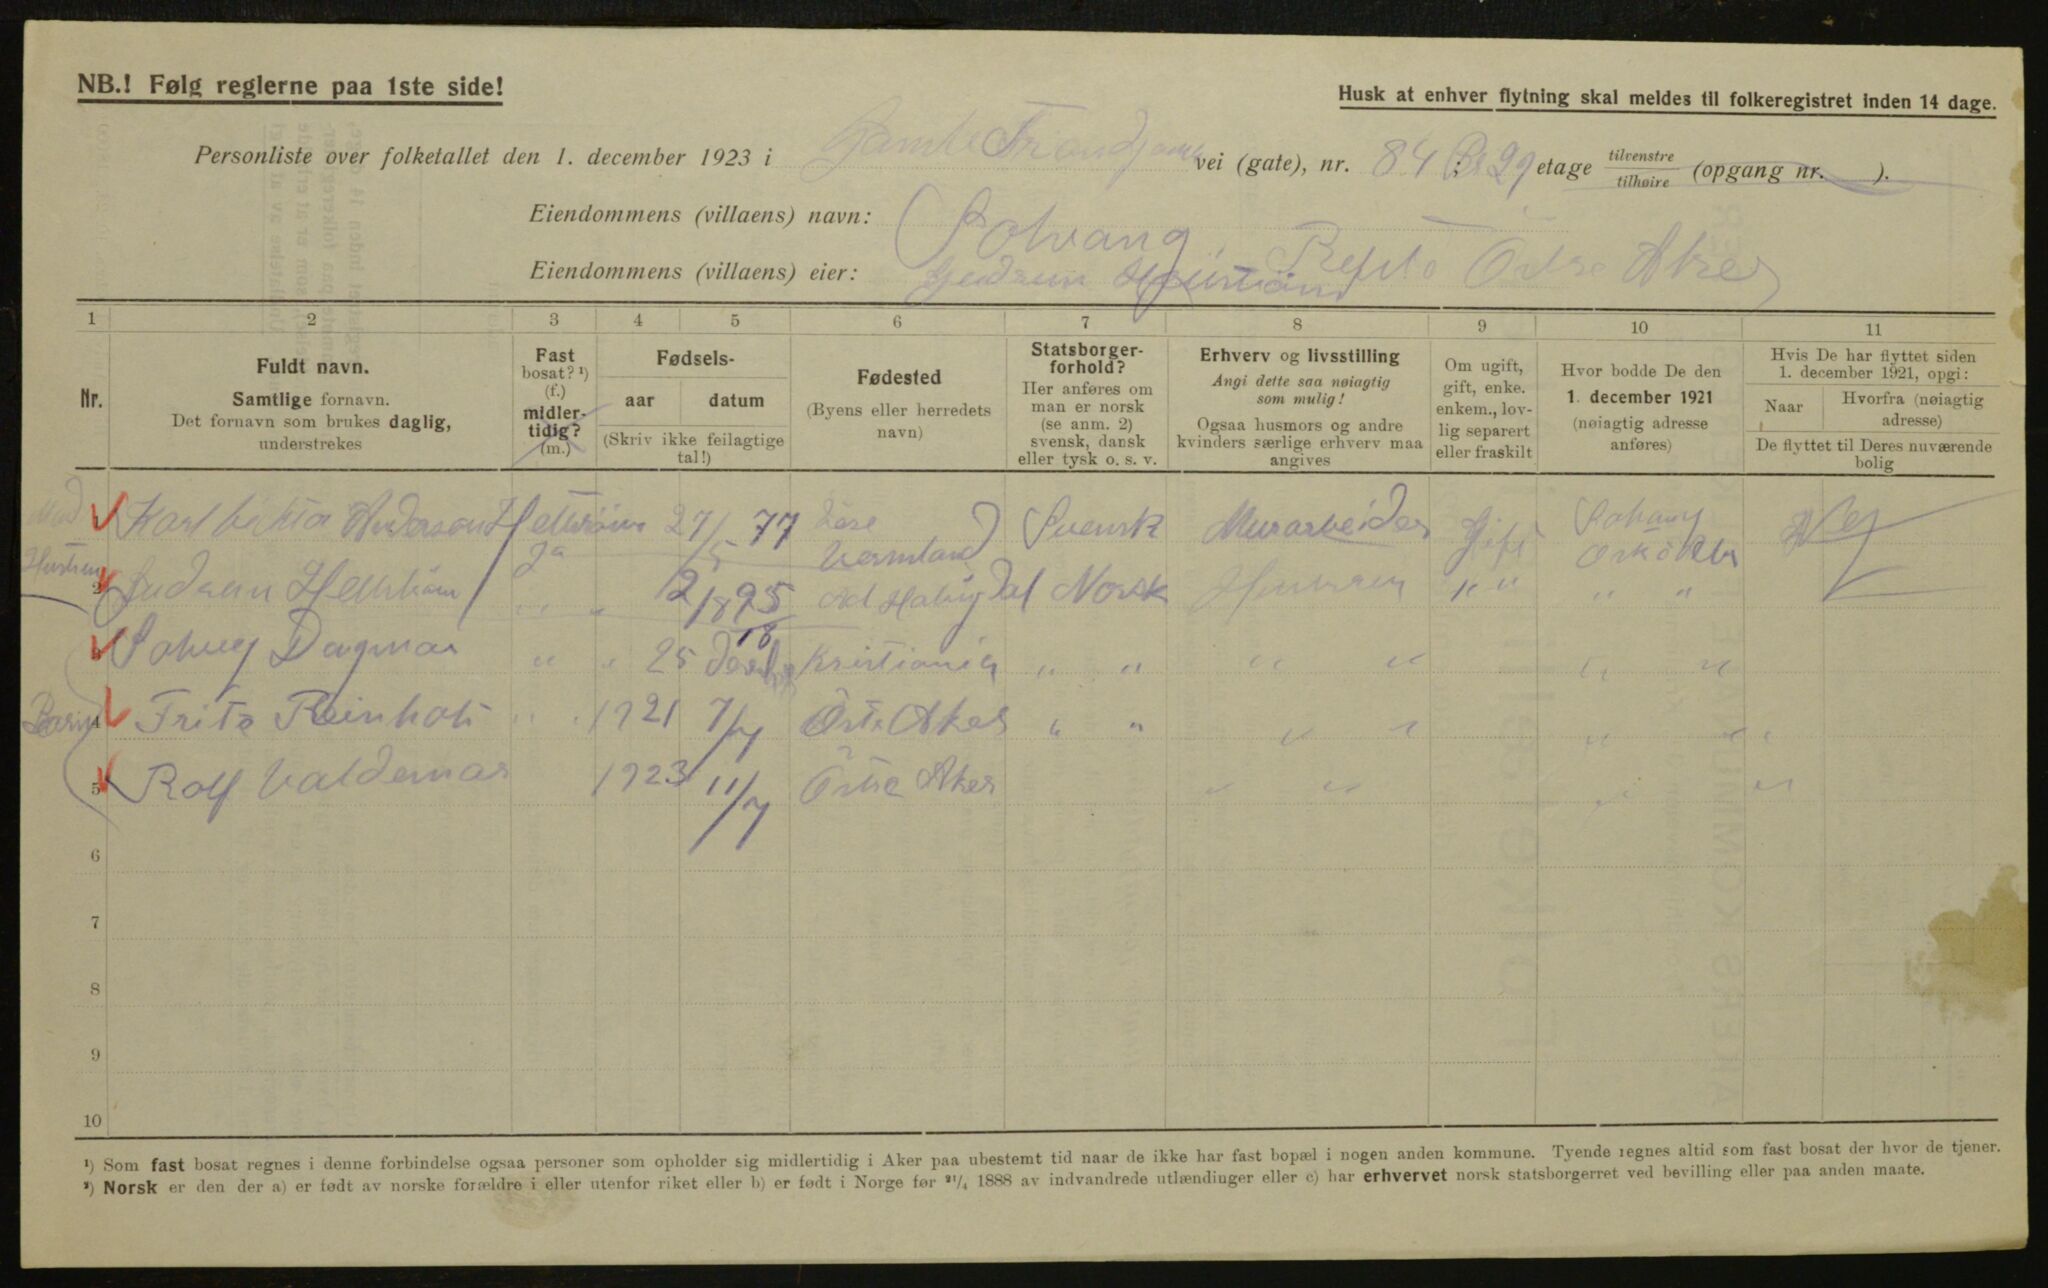 NB.! Følg reglerne paa 1ste side!
Husk at enhver flytning skal meldes til folkeregistret inden 14 dage.
Personliste over folketallet den 1. december 1923 i Gamle Trondjems vei (gate), nr. 84 ; Br 29 etage tilvenstre / tilhøire (opgang nr. ).
Eiendommens (villaens) navn: Solvang, Østre Aker
Eiendommens (villaens) eier: Gudrun
1 2 3 4 5 6 7 8 9 10 11
Nr.
Fuldt navn.
Samtlige fornavn.
Det fornavn som brukes daglig,
understrekes
Fast
bosat? ¹)
(f.)
midler-
tidig?
(m.)
Fødsels-
aar datum
(Skriv ikke feilagtige
tal!)
Fødested
(Byens eller herredets
navn)
Statsborger-
forhold?
Her anføres om
man er norsk
(se anm. 2)
svensk, dansk
eller tysk o. s. v.
Erhverv og livsstilling
Angi dette saa nøiagtig
som mulig!
Ogsaa husmors og andre
kvinders særlige erhverv maa
angives
Om ugift,
gift, enke.
enkem., lov-
lig separert
eller fraskilt
Hvor bodde De den
1. december 1921
(nøiagtig adresse
anføres)
Hvis De har flyttet siden
1. december 1921, opgi:
Naar Hvorfra (nøiagtig
adresse)
De flyttet til Deres nuværende
bolig
1 Karl Viktor Anderson Hellström Ja 27/5 77 Vermland Svensk Murarbeider Gift Solvang Nei
Hustru 2 Gudrun Hellström " " 2/8 95 Hallingdal Norsk Husmoren " " " "
3 Solveig Dagmar " " 25 18 Kristiania " " " " " "
Barn 4 Frits Reinholt " " 1921 7/7 Østre Aker " " " " " "
5 Rolf Valdemar 1923 11/7 Østre Aker " " " "
6
7
8
9
10
¹) Som fast bosat regnes i denne forbindelse ogsaa personer som opholder sig midlertidig i Aker paa ubestemt tid naar de ikke har fast bopæl i nogen anden kommune. Tyende regnes altid som fast bosat der hvor de tjener.
²) Norsk er den der a) er født av norske forældre i eller utenfor riket eller b) er født i Norge før ²¹/₄ 1888 av indvandrede utlændinger eller c) har erhvervet norsk statsborgerret ved bevilling eller paa anden maate.